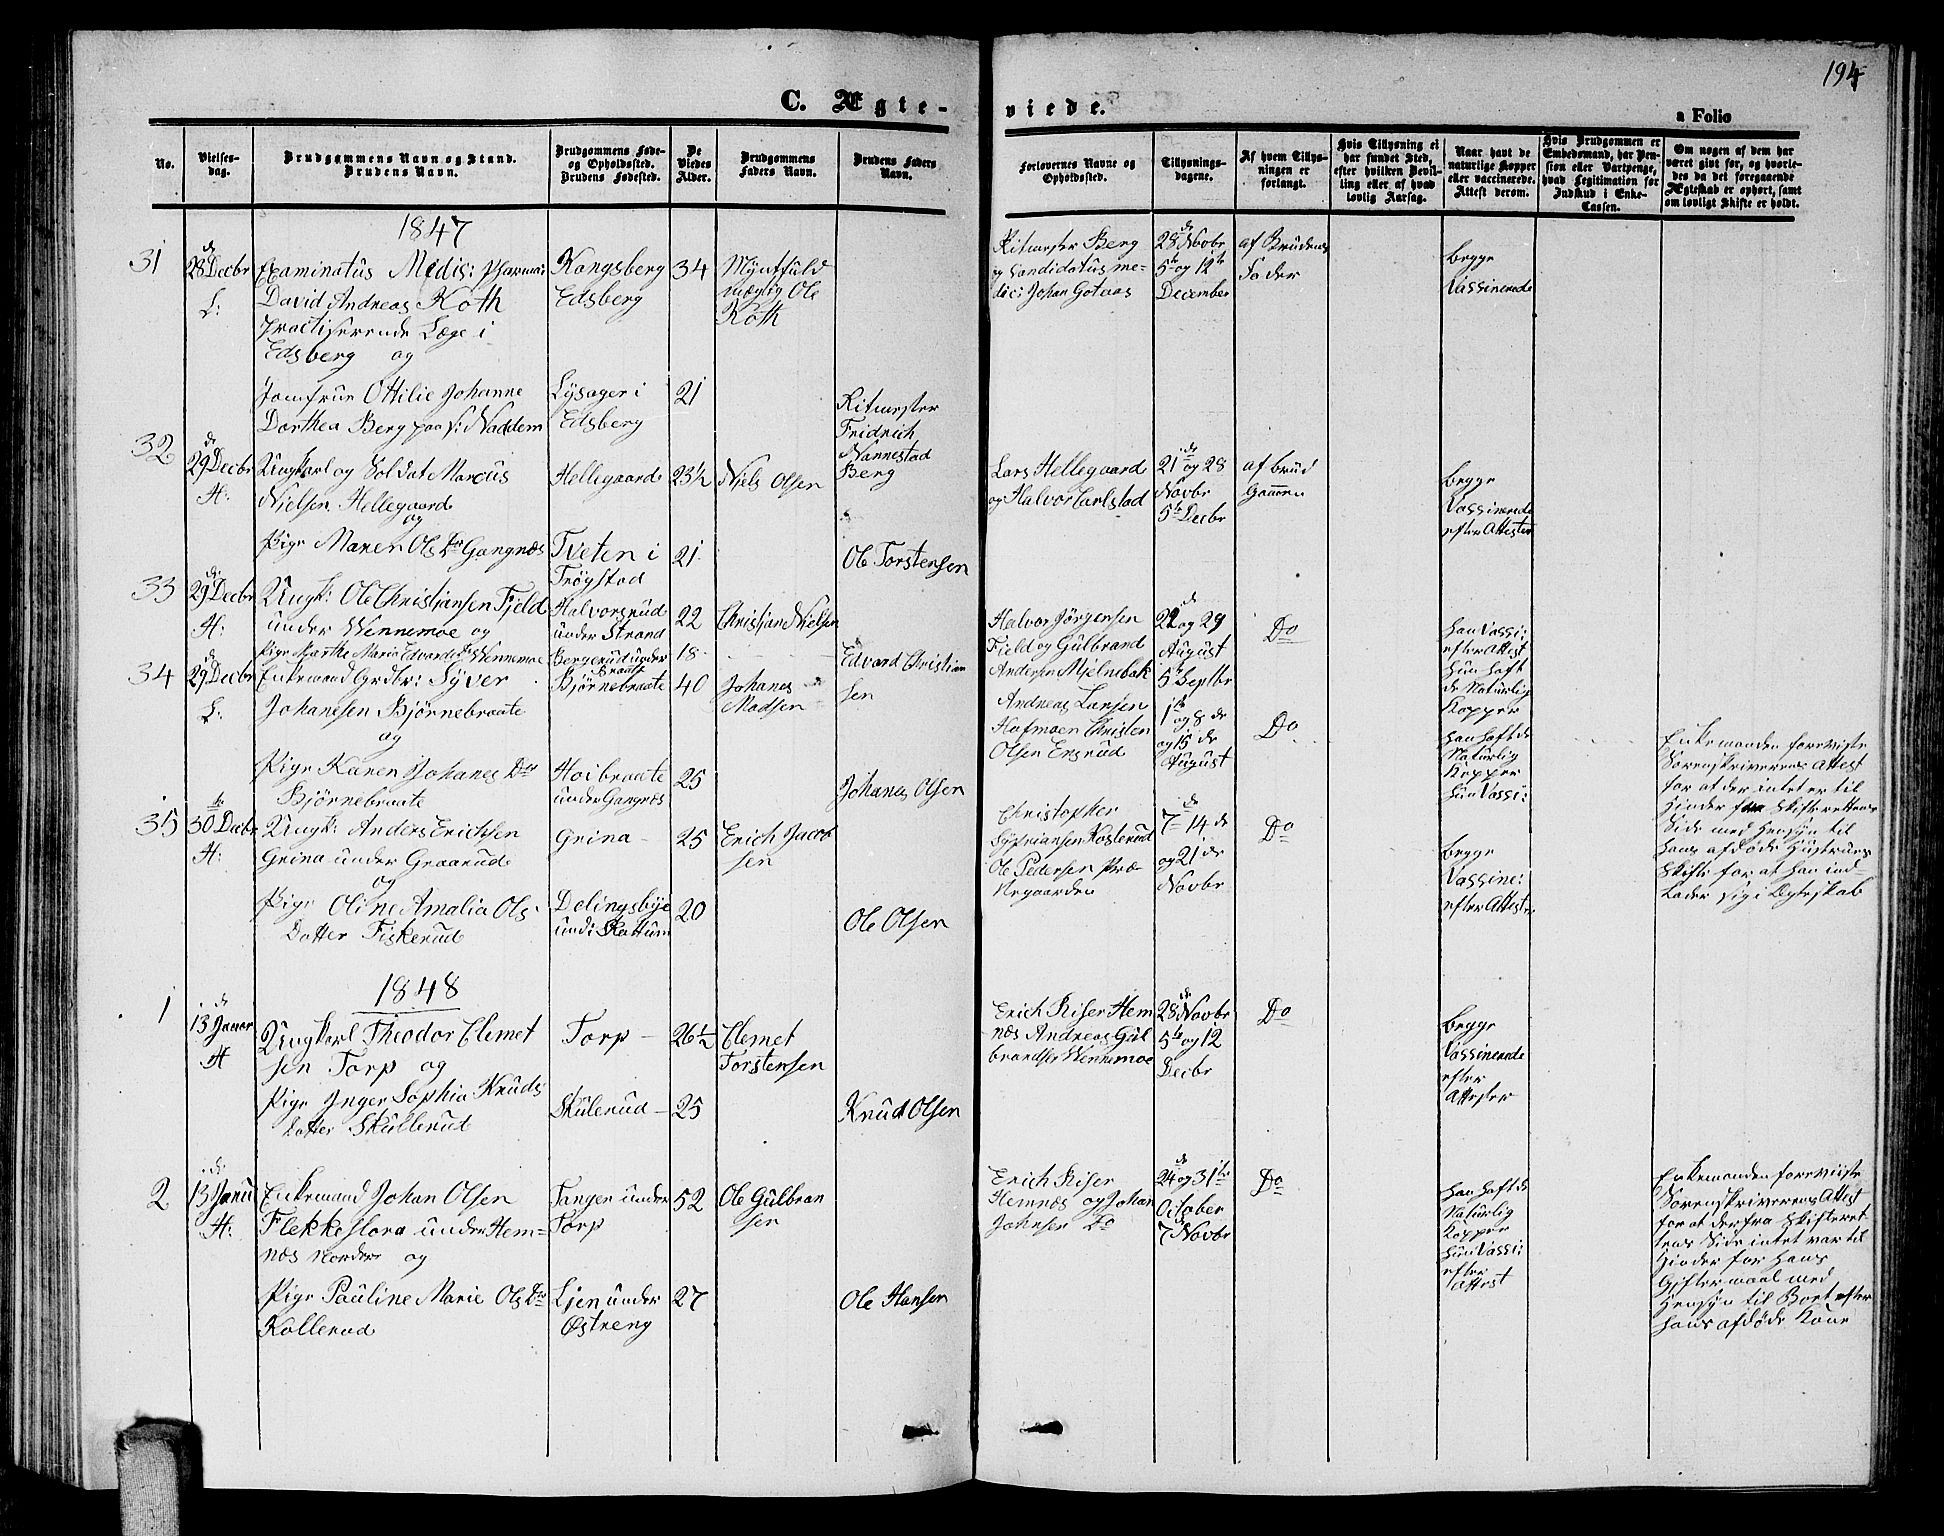 194
C. Ægte-
viede.
a Folio
No.
Vielses-
dag.
Brudgommens Navn og Stand.
Brudens Navn.
Brudgommens Føde-
og Opholdssted.
Brudens Fødested.
De
Viedes
Alder.
Brudgommens
Faders Navn.
Brudens Faders
Navn.
Forlovernes Navne og
Opholdssted.
Tillysnings-
dagene.
Af hvem Tillys-
ningen er
forlangt.
Hvis Tillysning ei
har fundet Sted,
efter hvilken Bevil-
ling eller af hvad
lovlig Aarsag.
Naar havt de
naturlige Kopper
eller vaccinerede.
Attest derom.
Hvis Brudgommen er
Embedsmand, har Pen-
sion eller Vartpenge,
hvad Legitimation for
Indskud i Enke-
Cassen.
Om nogen af dem har
været gift før, og hvorle-
des da det foregaaende
Ægteskab er ophørt, samt
om lovligt Skifte er holdt.
1847
31
de
28 Decbr
L:
Examinatus Medis: Pharma:
David Andreas Roth
practiserende Læge i
Edsberg og
Kongsberg
Edsberg
34
Myntfuld
mægtig Ole
Roth
Ritmester Berg
og Candidatus me-
dic: Johan Gotaas
de
28 Novbr
5te og 12te
December
af Brudens
Fader
begge
Vassinerede
Jomfrue Ottilie Johanne
Dorthea Berg paa f: Naddem
Lysager i
Edsberg
21
Ritmester
Fridrich
Nannestad
Berg
32
de
29 Decbr
H:
Ungkarl og Soldat Marcus
Nielsen Hellegaard
og
Hellegaard
23½
Niels Olsen
Lars Hellegaard
og Halvor Carlstad
de
21 og 28
Novbr
5te Decbr
af Brud
Gommen
begge
Vassinerede
efter Attester
Pige Maren Ols Dtr Gangnæs
Tveten i
Trøgstad
21
Ole Torstensen
33
de
29 Decbr
H:
Ungk: Ole Christjansen Fjeld
under Wennemoe og
Halvorsrud
under Strand
22
Christjan Nielsen
Halvor Jörgensen
Field og Gulbrand
Andersen Mjelnebak
de
22 og 29
August
5te Septbr
Do
han Vassi:
efter Attest
hun haft
de Naturlig
Kopper
Pige Marthe Maria Edvards Dr Wennemoe
Bergerud under
Braate
18
Edvard Christian
sen
34
de
29 Decbr
L:
Enkemand Grdbr: Syver
Johanesen Bjørnebraate
og
Bjørnebraate
40
Johanes
Madsen
Andreas Larsen
Hofmoen Christen
Olsen Ensrud
1te og 8 de
og 15 de
August
Do
han haft de
Naturlig
Kopper
hun Vassi:
Enkemanden foreviste
Sorenskriverens Attest
for at der intet er til
Hinder fra Skifterettens
Side med Hensyn til
hans afdøde Hustrues
Skifte for at han ind-
lader sig i Ægteskab
Pige Karen Johanes Dtr
Bjørnebraate
Hoibraate
under Gangnæs
25
Johanes Olsen
35
te
30 Decbr
H:
Ungk: Anders Erichsen
Grina under Graarud
og
Grina
25
Erich Jacob
sen
Christopher
Sypriansen Kosterud
Ole Pedersen Præ-
stegaarden
de
7 – 14 de
og 21 de
Novbr
Do
begge
Vassine:
efter Attest
Pige Oline Amalia Ols
Datter Fiskerud
Delingsbye
und: Skottum
20
Ole Olsen
1848
1
de
13 Januar
H
Ungkarl Theodor Clemet
sen Torp og
Torp
26½
Clemet
Torstensen
Erich Riser Hem
næs Andreas Gul
brandsen Wennemoe
de
28 Novbr
5te og 12
Decbr
Do
begge
Vassinerede
efter
Attester
Pige Inger Sophia Knuds
Datter Skullerud
Skulerud
25
Knud Olsen
2
de
13 Janu
H:
Enkemand Johan Olsen
Flekkeslora under Hem-
næs nordre og
Tangen under
Torp
52
Ole Gulbran
sen
Erich Riser
Hemnæs og Johan
Johnsen Do
de
24 og 31te
October
7 Novbr
Do
han haft de
Naturlig
Kopper
hun Vassi:
efter
Attest
Enkemanden foreviiste
Sorenskriverens Attest
for at der fra Skifteret-
tens Side intet var til
Hinder for hans
Giftermaal med
Hensyn til Boet efter
hans afdøde Kone
Pige Pauline Marie Ols Dtr
Kollerud
Ljen under
Østreng
27
Ole Hansen